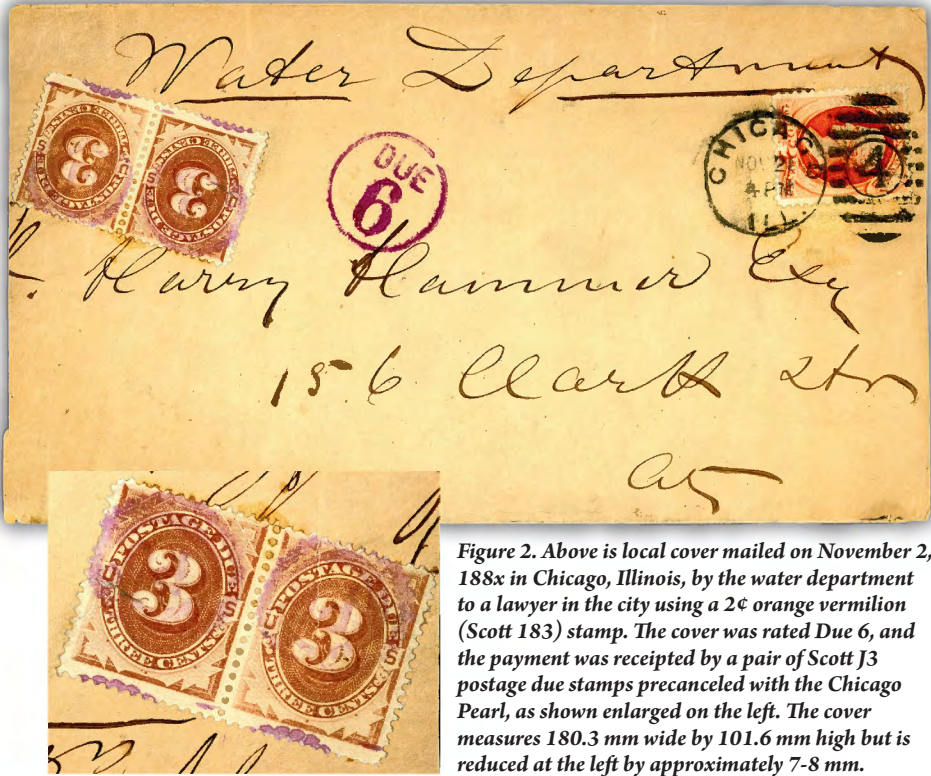 Water Department
POSTAGE DUE
U 3 S
THREE CENTS
POSTAGE DUE
U 3 S
THREE CENTS
DUE
6
CHICAGO
NOV 2
4 PM
ILL.
4
Harry Hammer Esq
156 Clark Str
City
POSTAGE DUE
U 3 S
THREE CENTS
POSTAGE DUE
U 3 S
THREE CENTS
Figure 2. Above is local cover mailed on November 2,
188x in Chicago, Illinois, by the water department
to a lawyer in the city using a 2¢ orange vermilion
(Scott 183) stamp. The cover was rated Due 6, and
the payment was receipted by a pair of Scott J3
postage due stamps precanceled with the Chicago
Pearl, as shown enlarged on the left. The cover
measures 180.3 mm wide by 101.6 mm high but is
reduced at the left by approximately 7-8 mm.